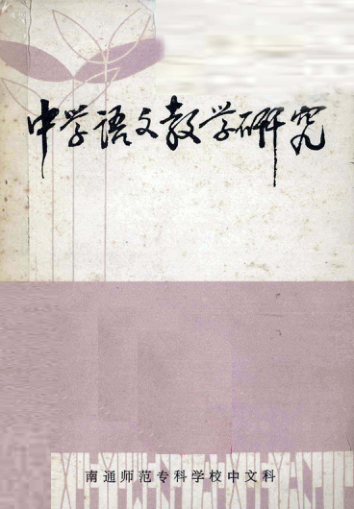 中学语文教学研究
南通师范专科学校中文科